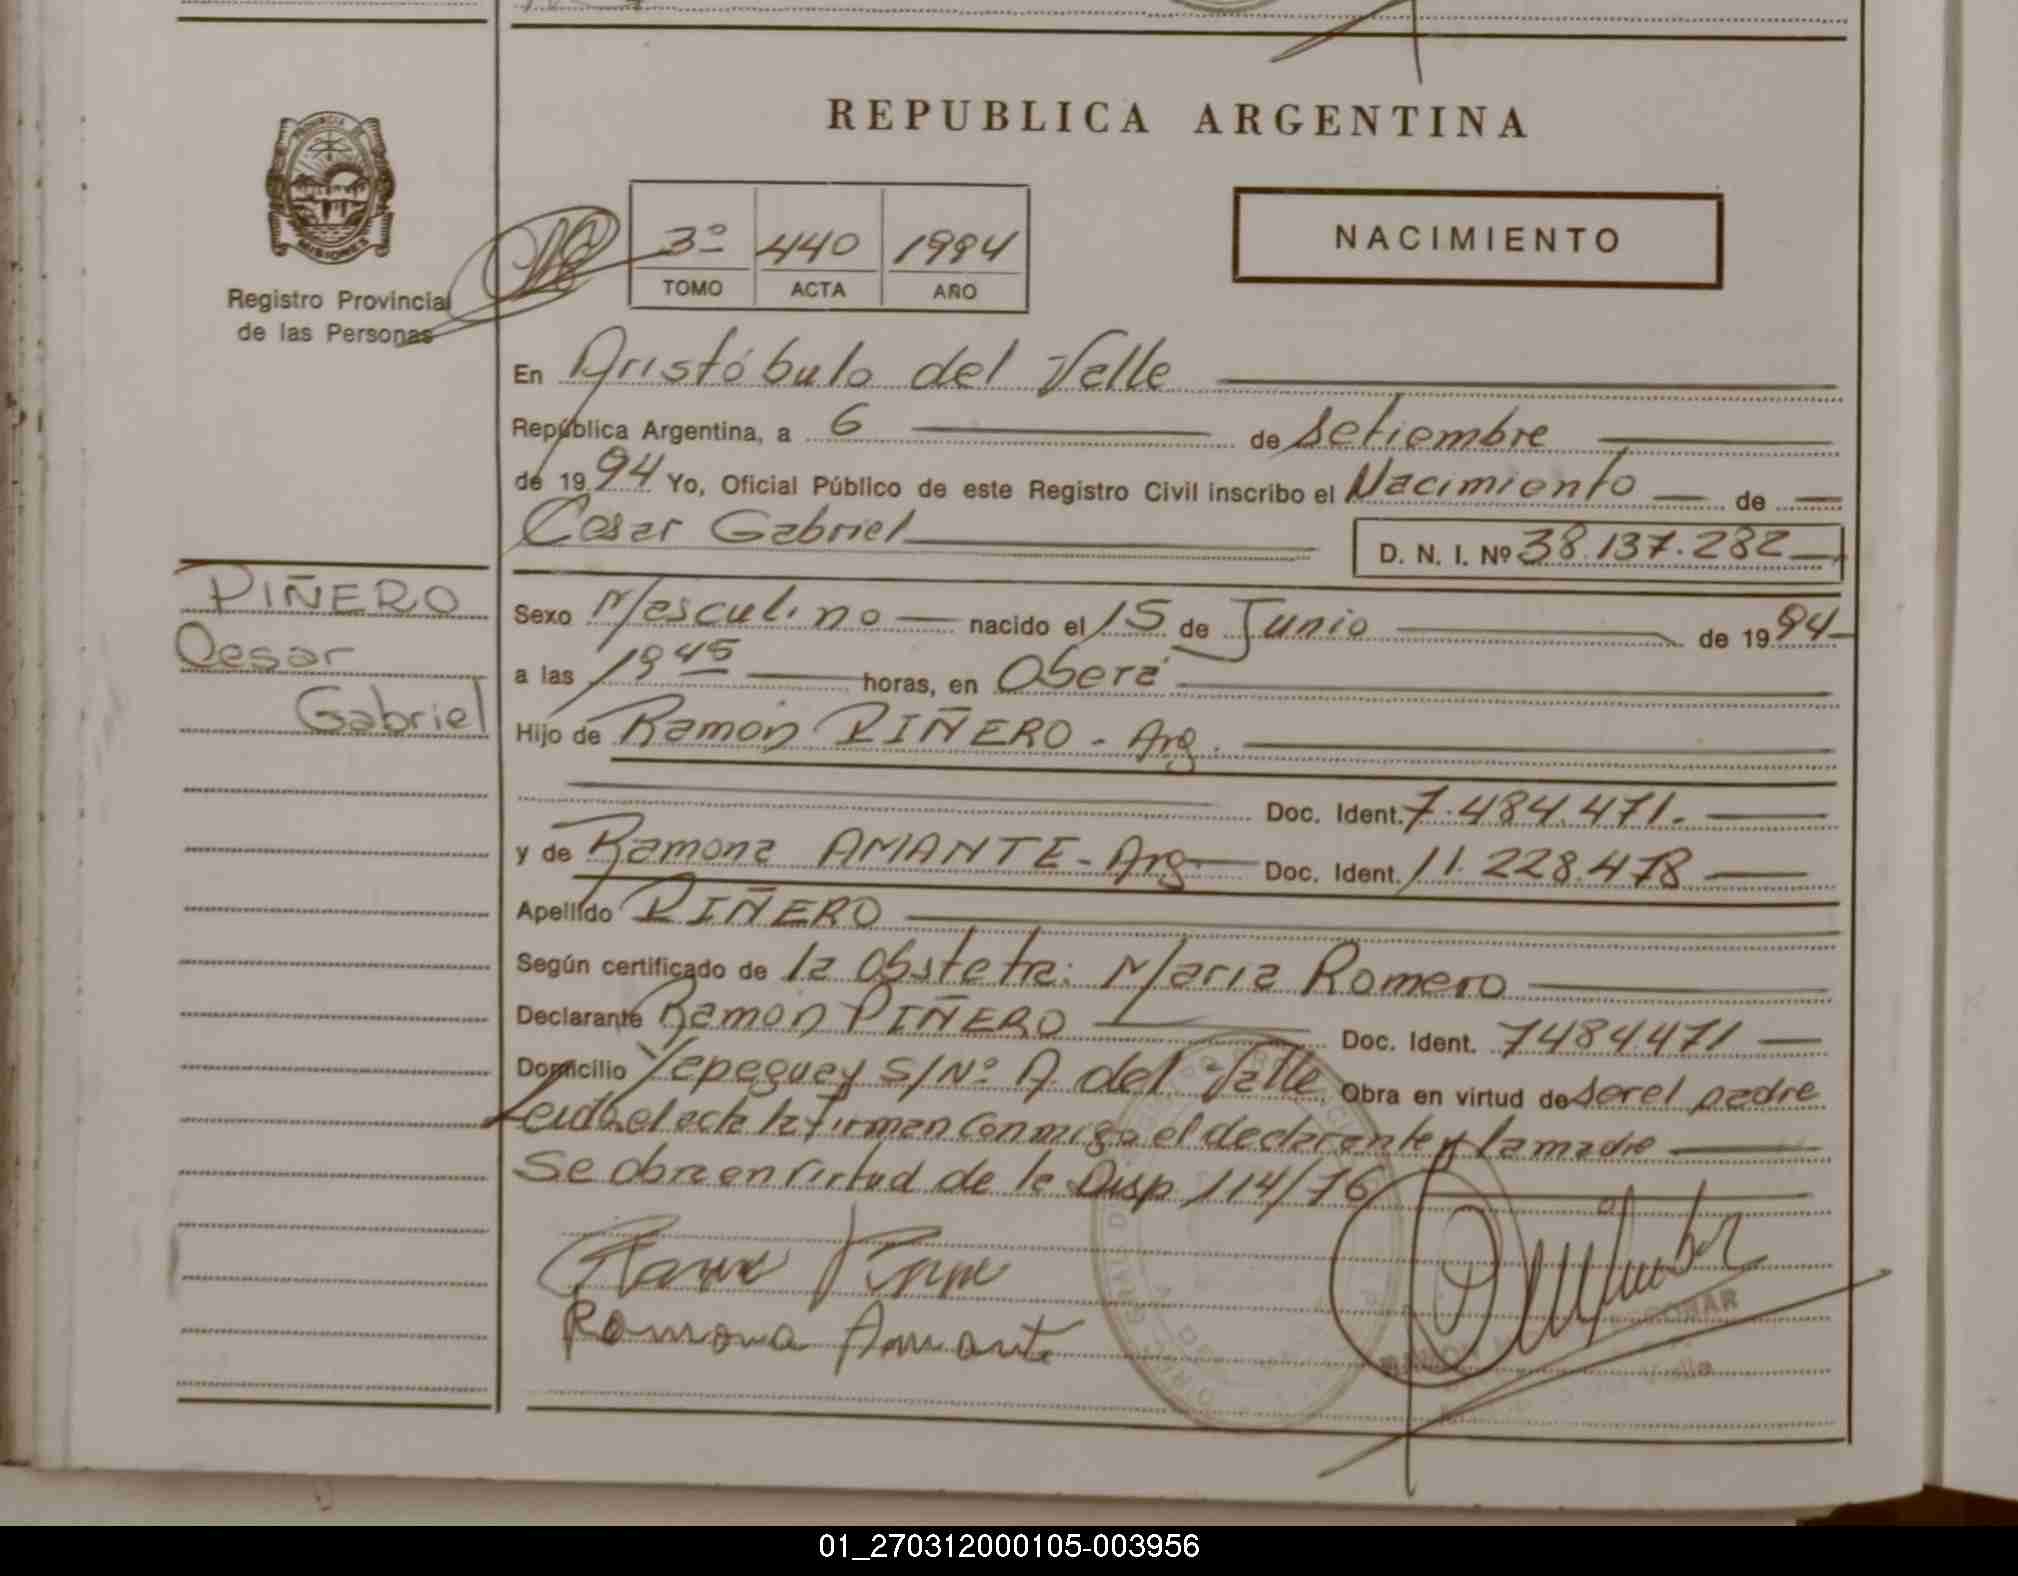 REPUBLICA ARGENTINA
PROVINCIA DE
MISIONES
Registro Provincial
de las Personas
3º 440 1994
TOMO ACTA AÑO
NACIMIENTO
En Aristóbulo del Valle
República Argentina, a 6 de setiembre
de 1994 Yo, Oficial Público de este Registro Civil inscribo el Nacimiento de
Cesar Gabriel D. N. I. Nº 38.137.282
PIÑERO
Cesar
Gabriel
Sexo Masculino nacido el 15 de Junio de 1994
a las 19 45 horas, en Oberá
Hijo de Ramón PIÑERO - Arg.
Doc. Ident. 7.484.471.
y de Ramona AMANTE - Arg Doc. Ident. 11.228.478
Apellido PIÑERO
Según certificado de la Obstetra: Maria Romero
Declarante Ramón PIÑERO Doc. Ident. 7484471
Domicilio Yapeguay S/Nº A. del Valle Obra en virtud de ser el padre
Leida el acta la firman conmigo el declarante y la madre
Se obra en virtud de la Disp 114/76
Ramona Amante
01_270312000105-003956